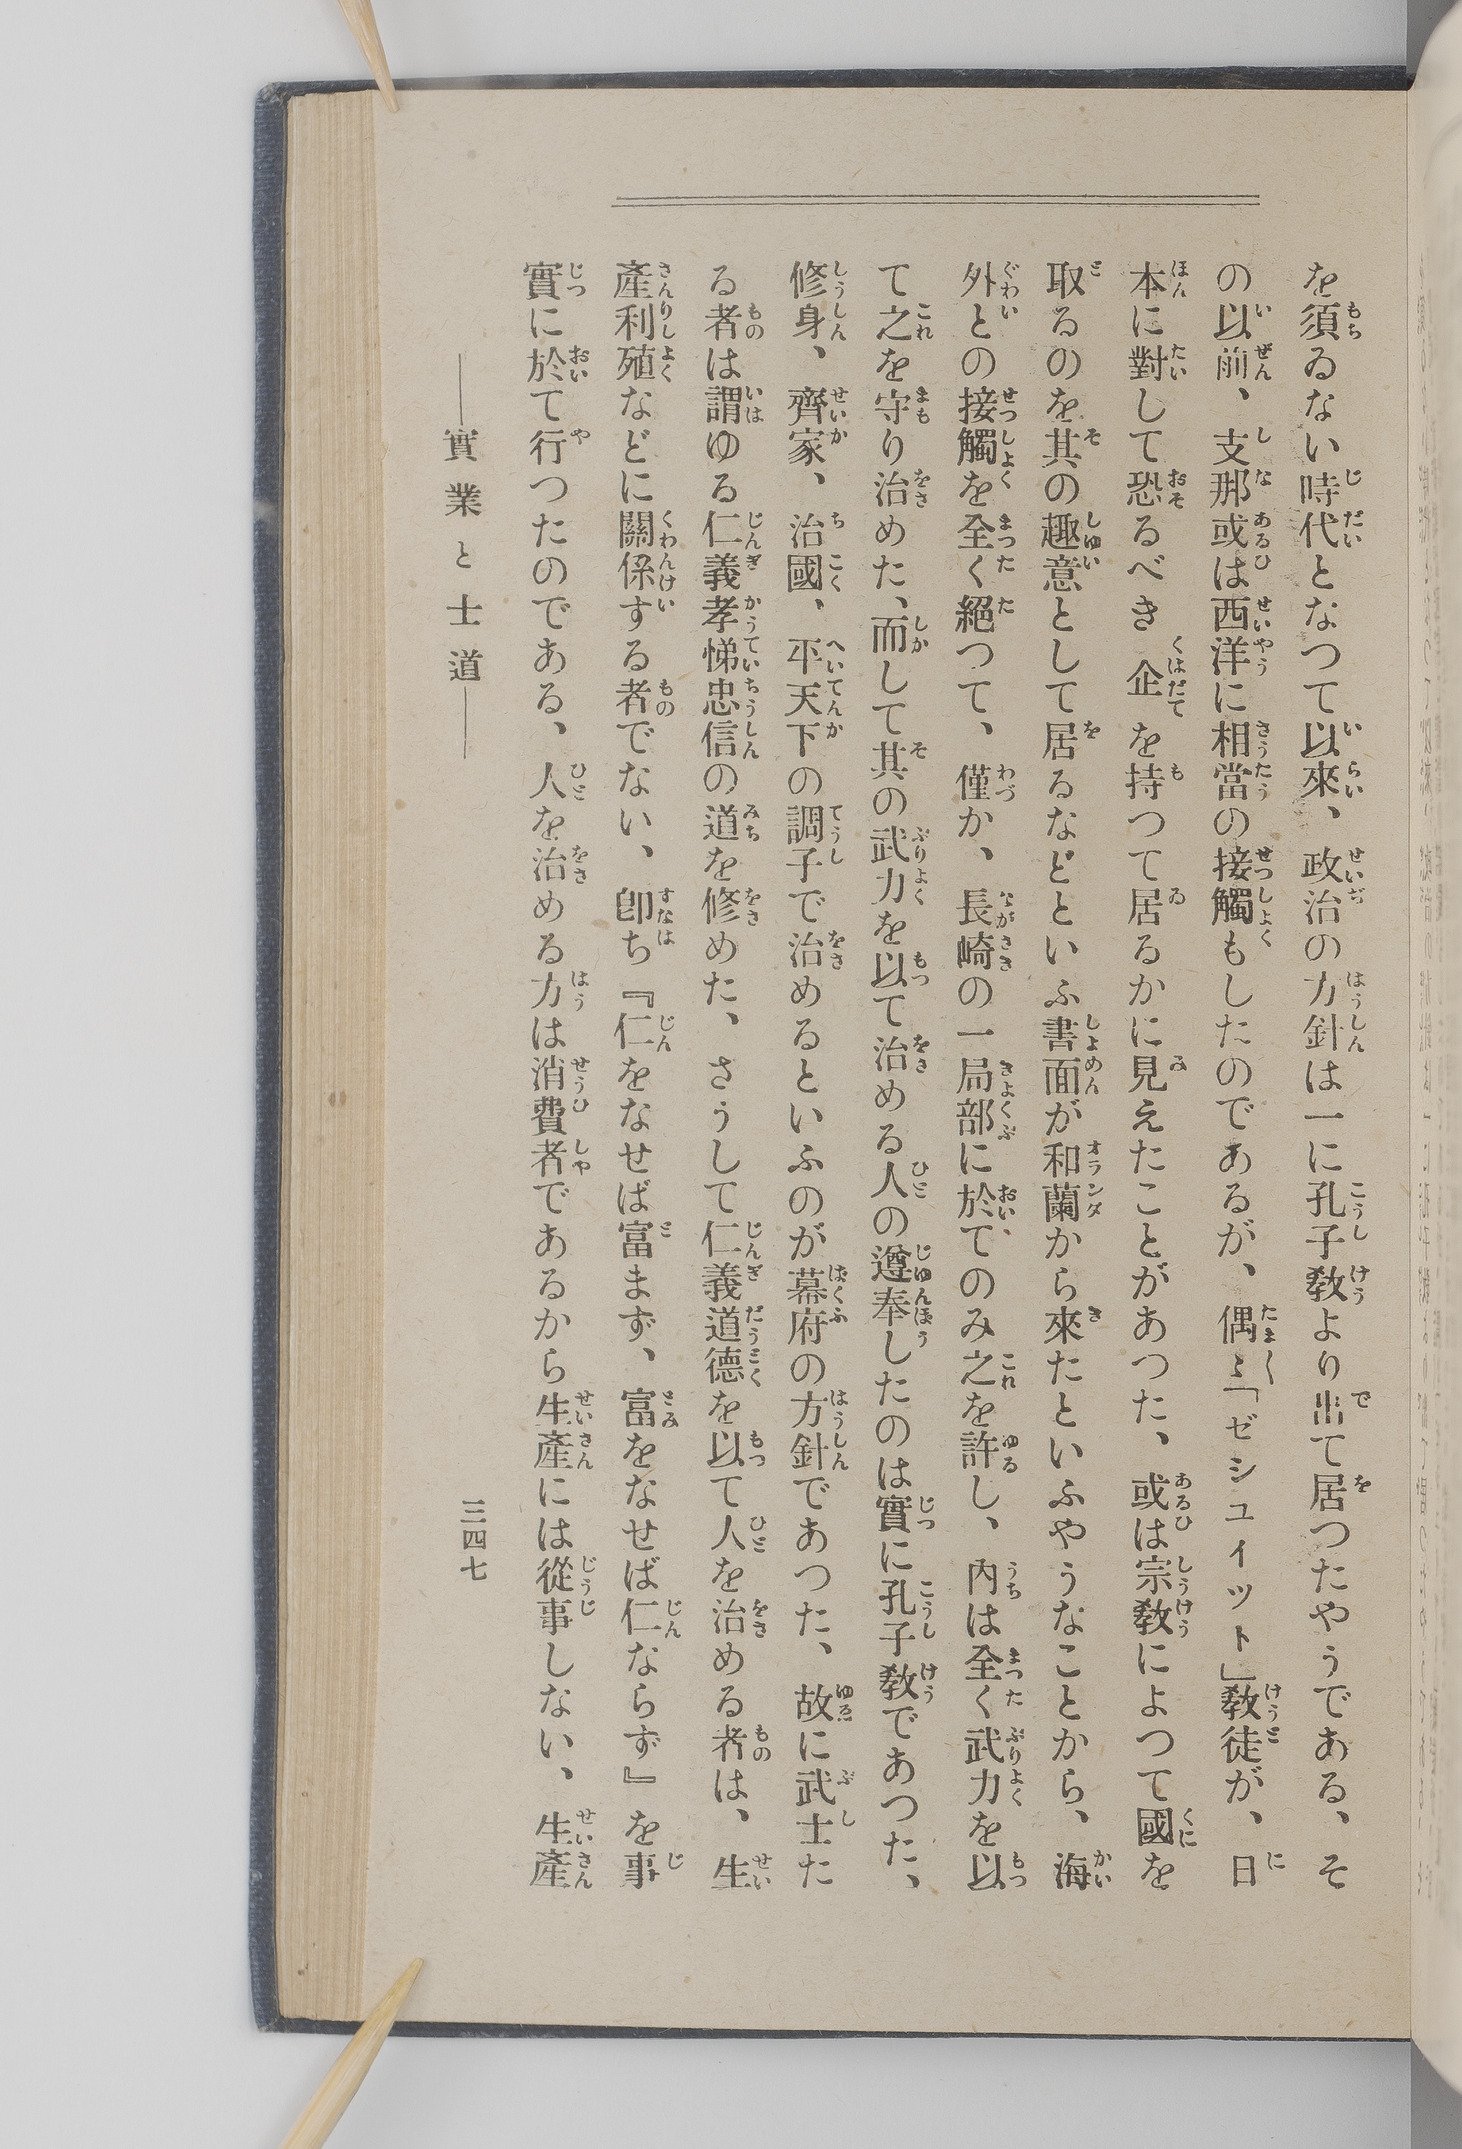 を須ゐない時代となつて以來、政治の方針は一に孔子敎より出て居つたやうである、そ
の以前、支那或は西洋に相當の接觸もしたのであるが、偶〻「ゼシュイット」敎徒が、日
本に對して恐るべき企を持つて居るかに見えたことがあつた、或は宗敎によつて國を
取るのを其の趣意として居るなどといふ書面が和蘭から來たといふやうなことから、海
外との接觸を全く絕つて、僅か、長崎の一局部に於てのみ之を許し、內は全く武力を以
て之を守り治めた、而して其の武力を以て治める人の遵奉したのは實に孔子敎であつた、
修身、齊家、治國、平天下の調子で治めるといふのが幕府の方針であつた、故に武士た
る者は謂ゆる仁義孝悌忠信の道を修めた、さうして仁義道德を以て人を治める者は、生
產利殖などに關係する者でない、卽ち『仁をなせば富まず、富をなせば仁ならず』を事
實に於て行つたのである、人を治める方は消費者であるから生產には從事しない、生產
――實業と士道――
三四七